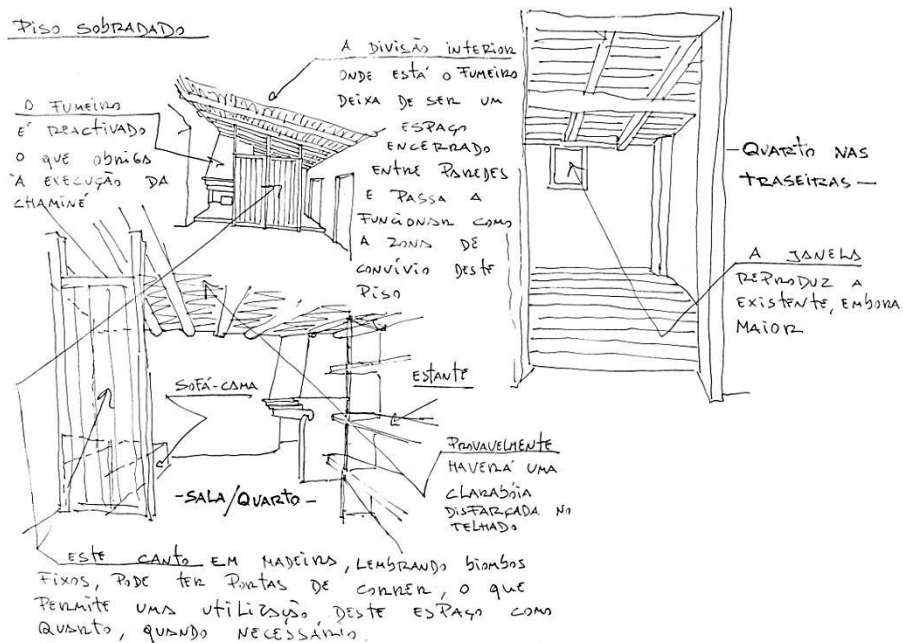 PISO SOBRADADO
O FUMEIRO
É REACTIVADO
O QUE OBRIGA
À EXECUÇÃO DA
CHAMINÉ
A DIVISÃO INTERIOR
ONDE ESTÁ O FUMEIRO
DEIXA DE SER UM
ESPAÇO
ENCERRADO
ENTRE PAREDES
E PASSA A
FUNCIONAR COMO
A ZONA DE
CONVÍVIO DESTE
PISO
- QUARTO NAS
TRASEIRAS -
A JANELA
REPRODUZ A
EXISTENTE, EMBORA
MAIOR
SOFÁ-CAMA
ESTANTE
- SALA/QUARTO -
PROVAVELMENTE
HAVERÁ UMA
CLARABÓIA
DISFARÇADA NO
TELHADO
ESTE CANTO EM MADEIRA, LEMBRANDO BIOMBOS
FIXOS, PODE TER PORTAS DE CORRER, O QUE
PERMITE UMA UTILIZAÇÃO, DESTE ESPAÇO COMO
QUARTO, QUANDO NECESSÁRIO.